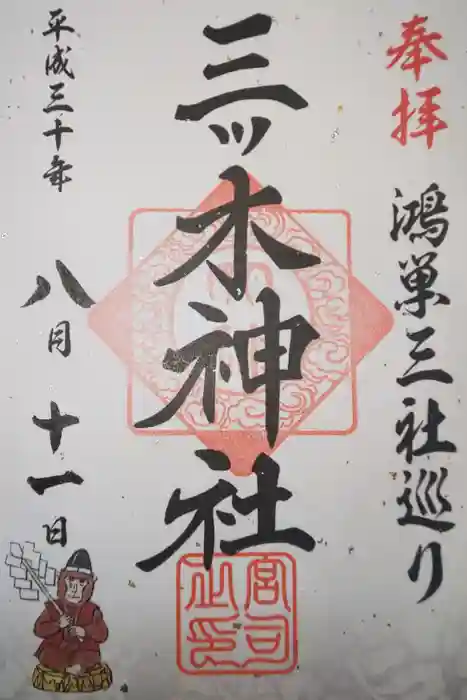 奉拝
鴻巣三社巡り
三ッ木神社
宮司之印
平成三十年
八月十一日